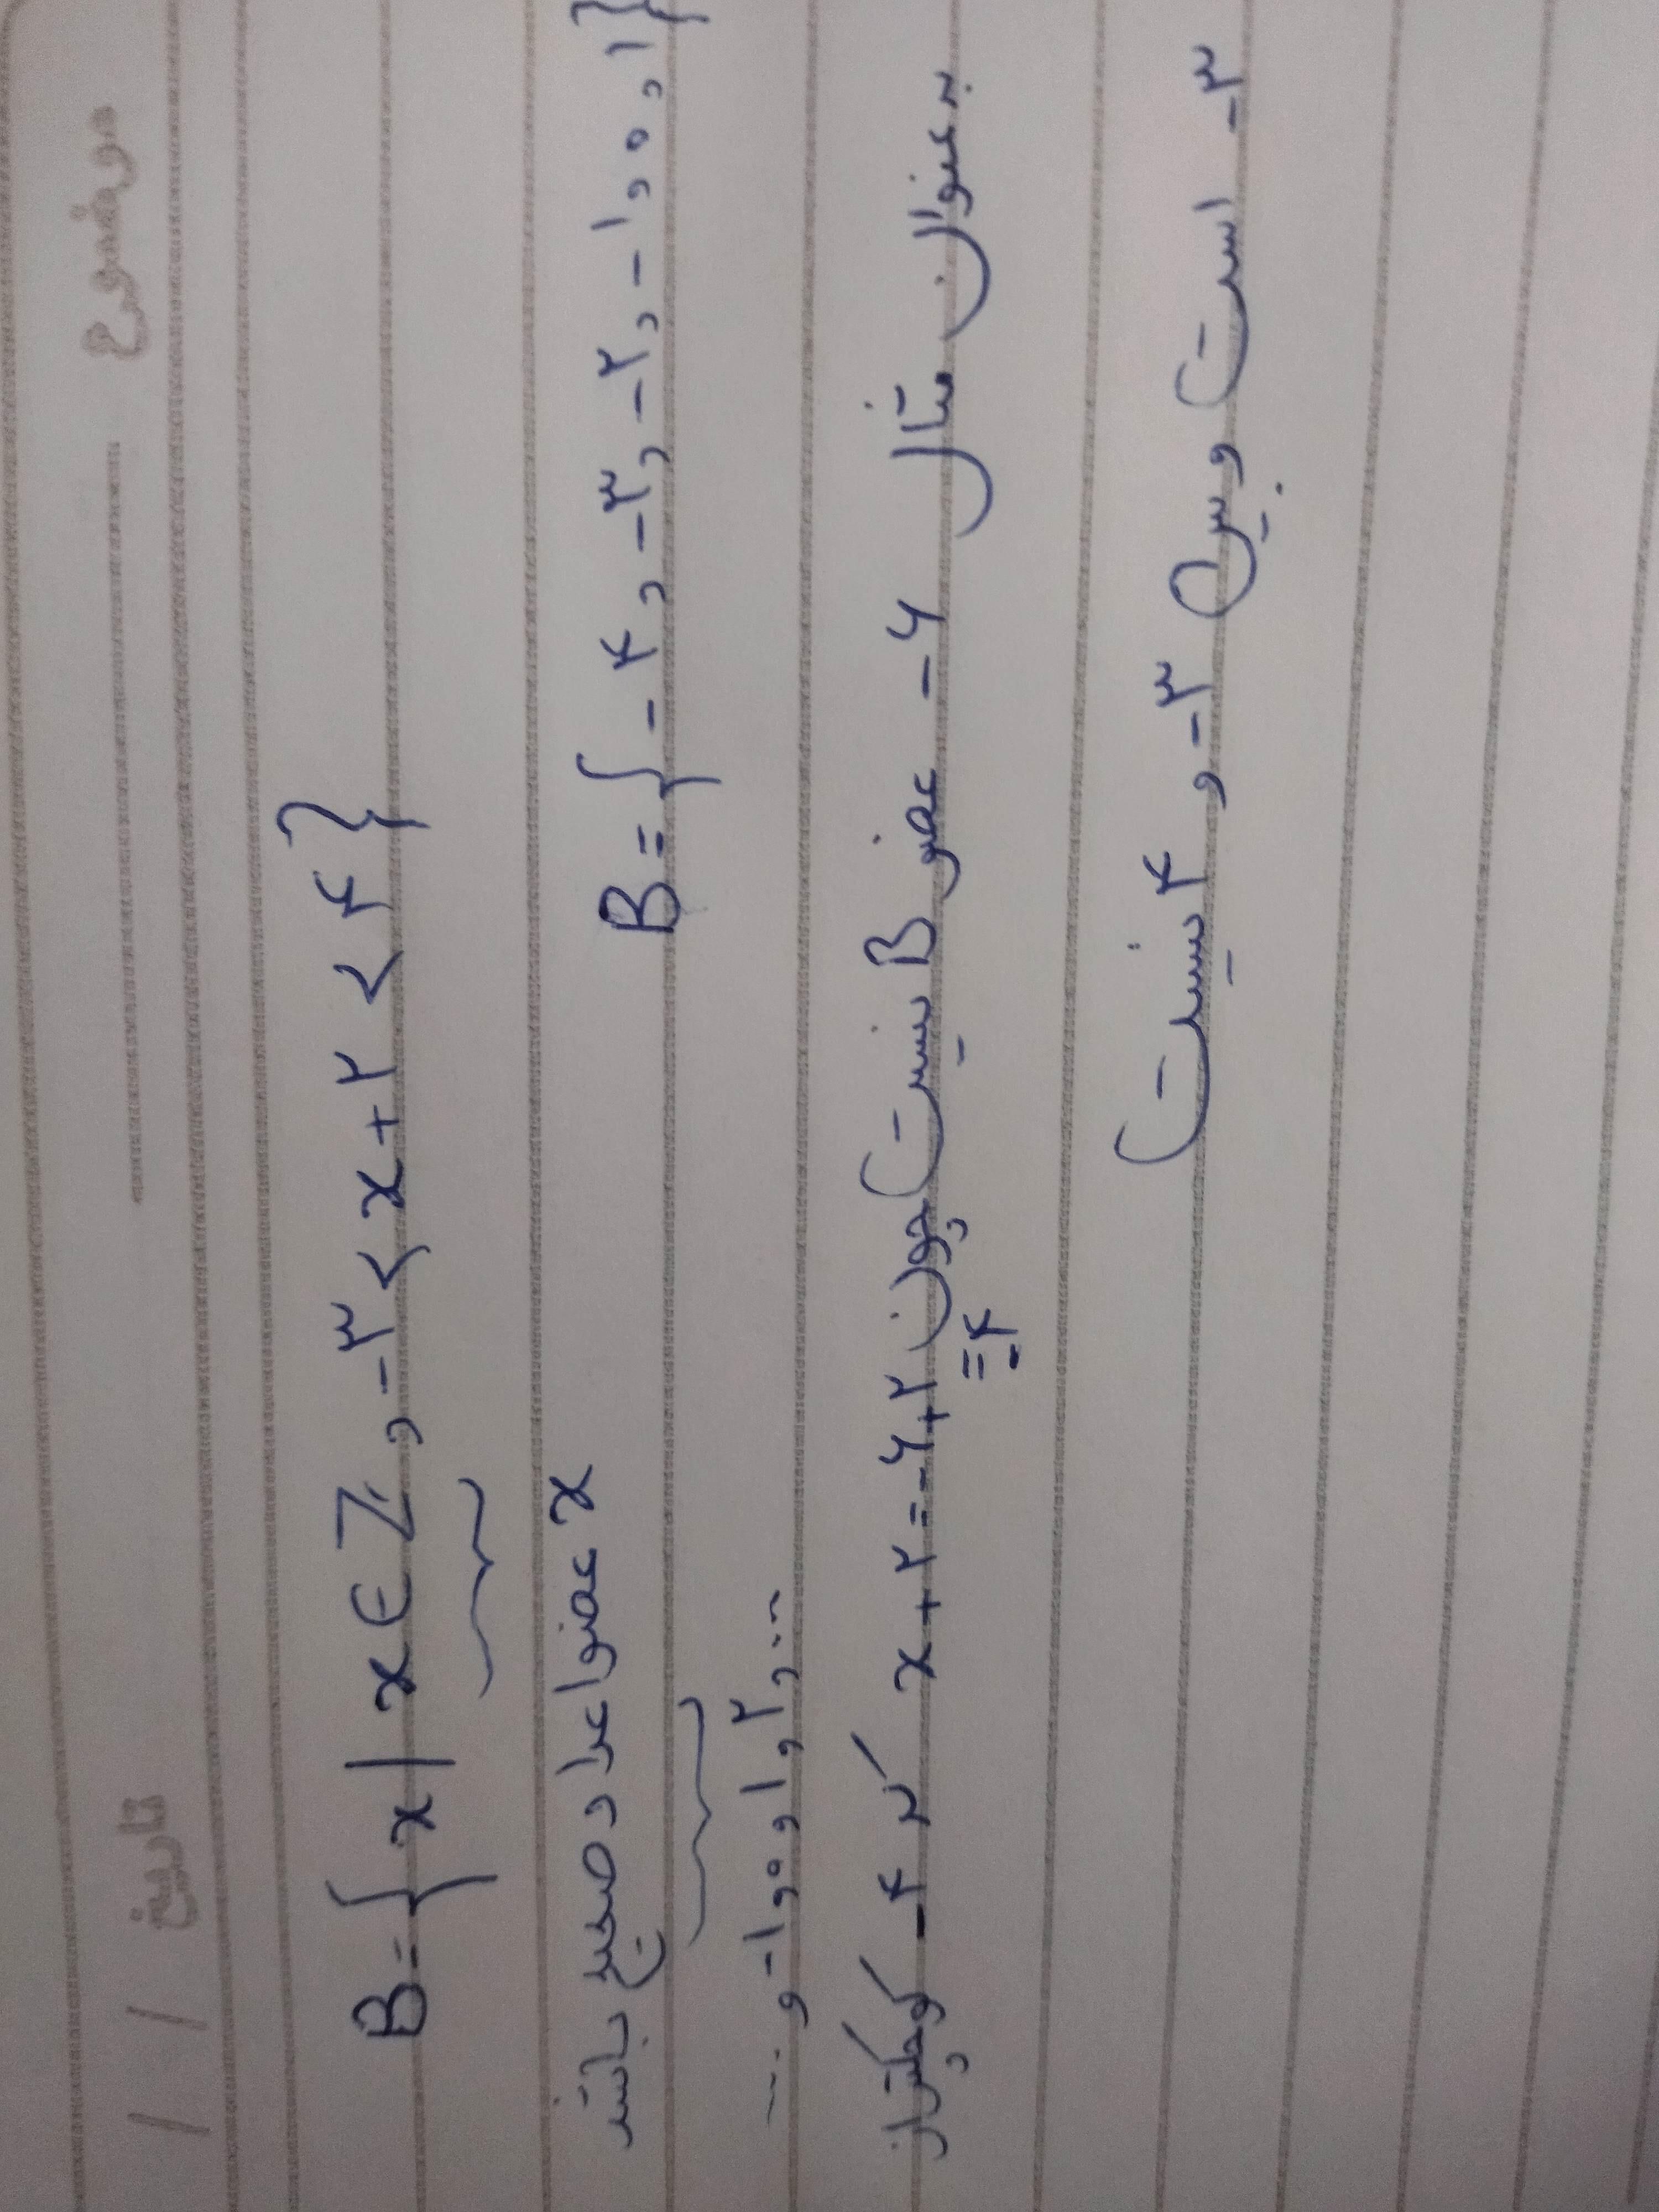 موضوع تاریخ / /
B = { x | x ∈ Z , -۳ < x + ۲ < ۴ }
x عضو اعداد صحیح باشد
B = { -۴ , -۳ , -۲ , -۱ , ۰ , ۱ }
... و -۱ و ۰ و ۱ و ۲ و ...
به عنوان مثال -۶ عضو B نیست چون x + ۲ = -۶ + ۲ = -۴ که -۴ کوچکتر از
-۳ است و بین -۳ و ۴ نیست